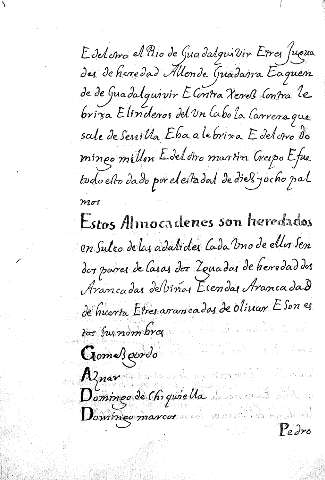 E del otro el Rio de Guadalquivir E tres Jugua
das de heredad Allende Guadaira E aquen
de de Guadalquivir E Contra Xerez Contra Le
brixa E linderos del Un Cabo la Carrera que
sale de Sevilla E ba a lebrixa E del otro Do
mingo millan E del otro martin Crespo E fue
todo esto dado por el estadal de diez y ocho pal
mos
Estos Almocadenes son heredados
en de las adalides Cada Uno de ellos Sen
dos pares de Casas dos Yguadas de heredad dos
Arancadas de Viñas E sendas Arancadas
de huerta E tres arancadas de olivar E Son es
tos sus nombres
Gomez
Aznar
Domingo de Chiquiella
Domingo marcos
Pedro